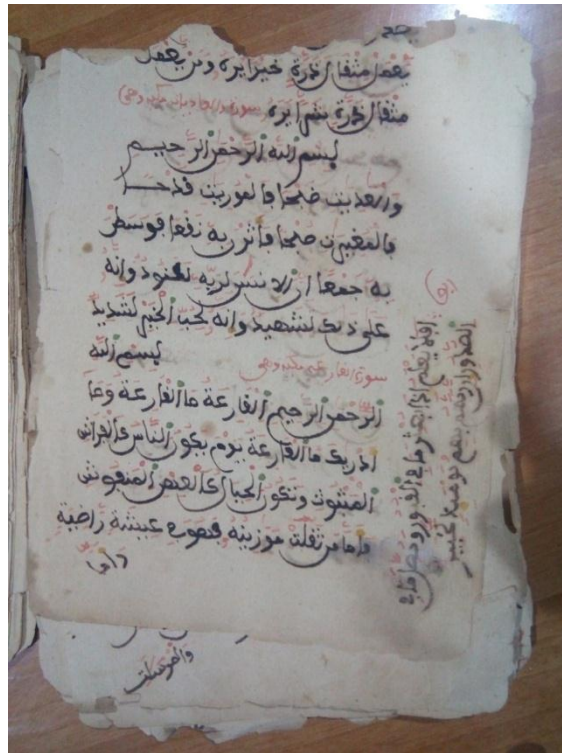 يعمل مثقال ذرة خيرا يره ومن يعمل
مثقال ذرة شرا يره سورة العاديات مكية وهي
بسم الله الرحمن الرحيم
والعديت ضبحا فالموريت قدحا
فالمغيرت صبحا فاثرن به نقعا فوسطن
به جمعا ان الانسن لربه لكنود وانه
على ذلك لشهيد وانه لحب الخير لشديد
بسم الله
سورة القارعة مكية وهي
الرحمن الرحيم القارعة ما القارعة وما
ادريك ما القارعة يوم يكون الناس كالفراش
المبثوث وتكون الجبال كالعهن المنفوش
فاما من ثقلت موزينه فهو في عيشة راضية
واما
افلا يعلم اذا بعثر ما في القبور وحصل ما في
الصدور ان ربهم بهم يومئذ لخبير